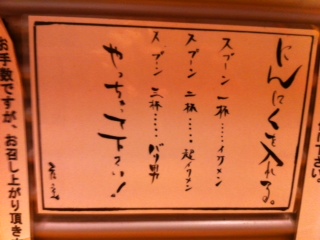 にんにくを入れる。
スプーン 一杯……イケメン
スプーン 二杯……超イケメン
スプーン 三杯……バリ男
やっちゃて下さい！
お手数ですが、お召し上がり頂き
下さい。